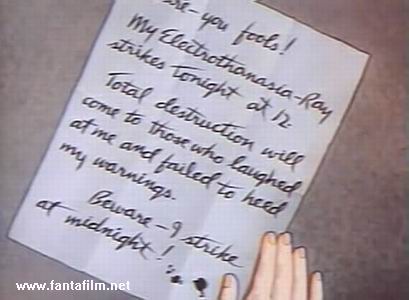 are-you fools!
My Electrothanasia-Ray
strikes tonight at 12
Total destruction will
come to those who laughed
at me and failed to heed
my warnings.
Beware-I strike
at midnight!
www.fantafilm.net